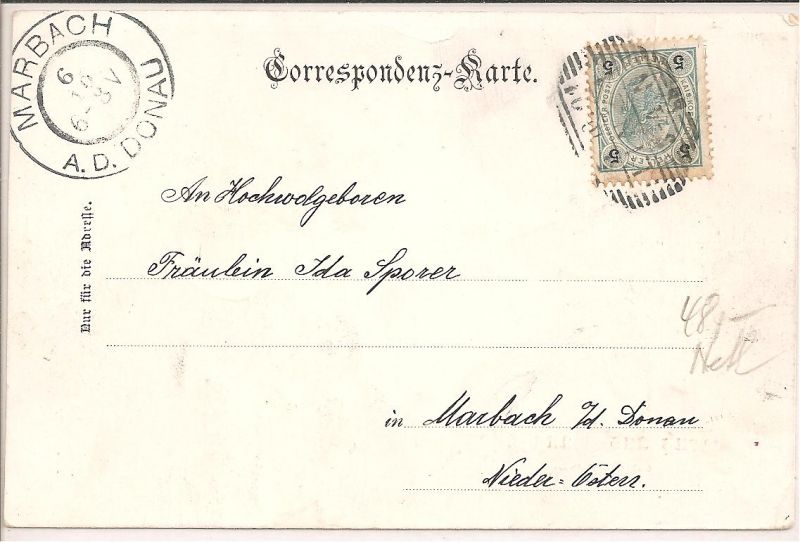 MARBACH
A. D. DONAU
Correspondenz-Karte.
5 5
5 5
An Hochwolgeboren
Nur für die Adresse.
Fräulein Ida Sporer
48,-
Nett
in Marbach a/d. Donau
Nieder-Österr.